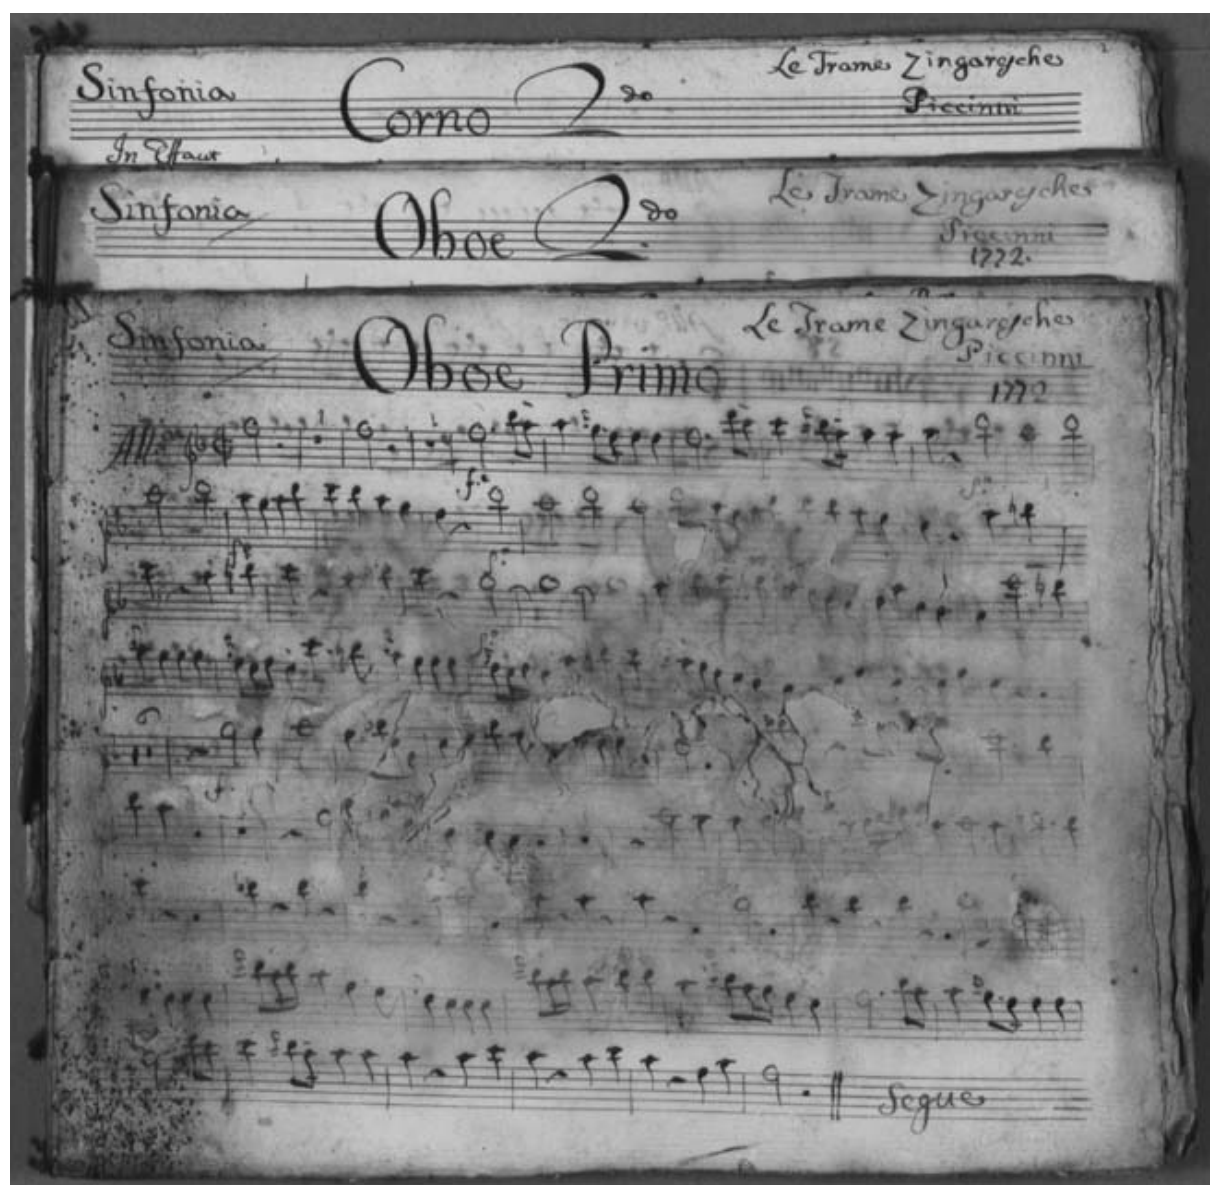 Sinfonia Corno 2do Le Trame Zingaresche
Piccinni
In Effaut
Sinfonia Oboe 2.do Le Trame Zingaresche
Piccinni
1772.
Sinfonia Oboe Primo Le Trame Zingaresche
Piccinni
1772
All:
f:
Segue